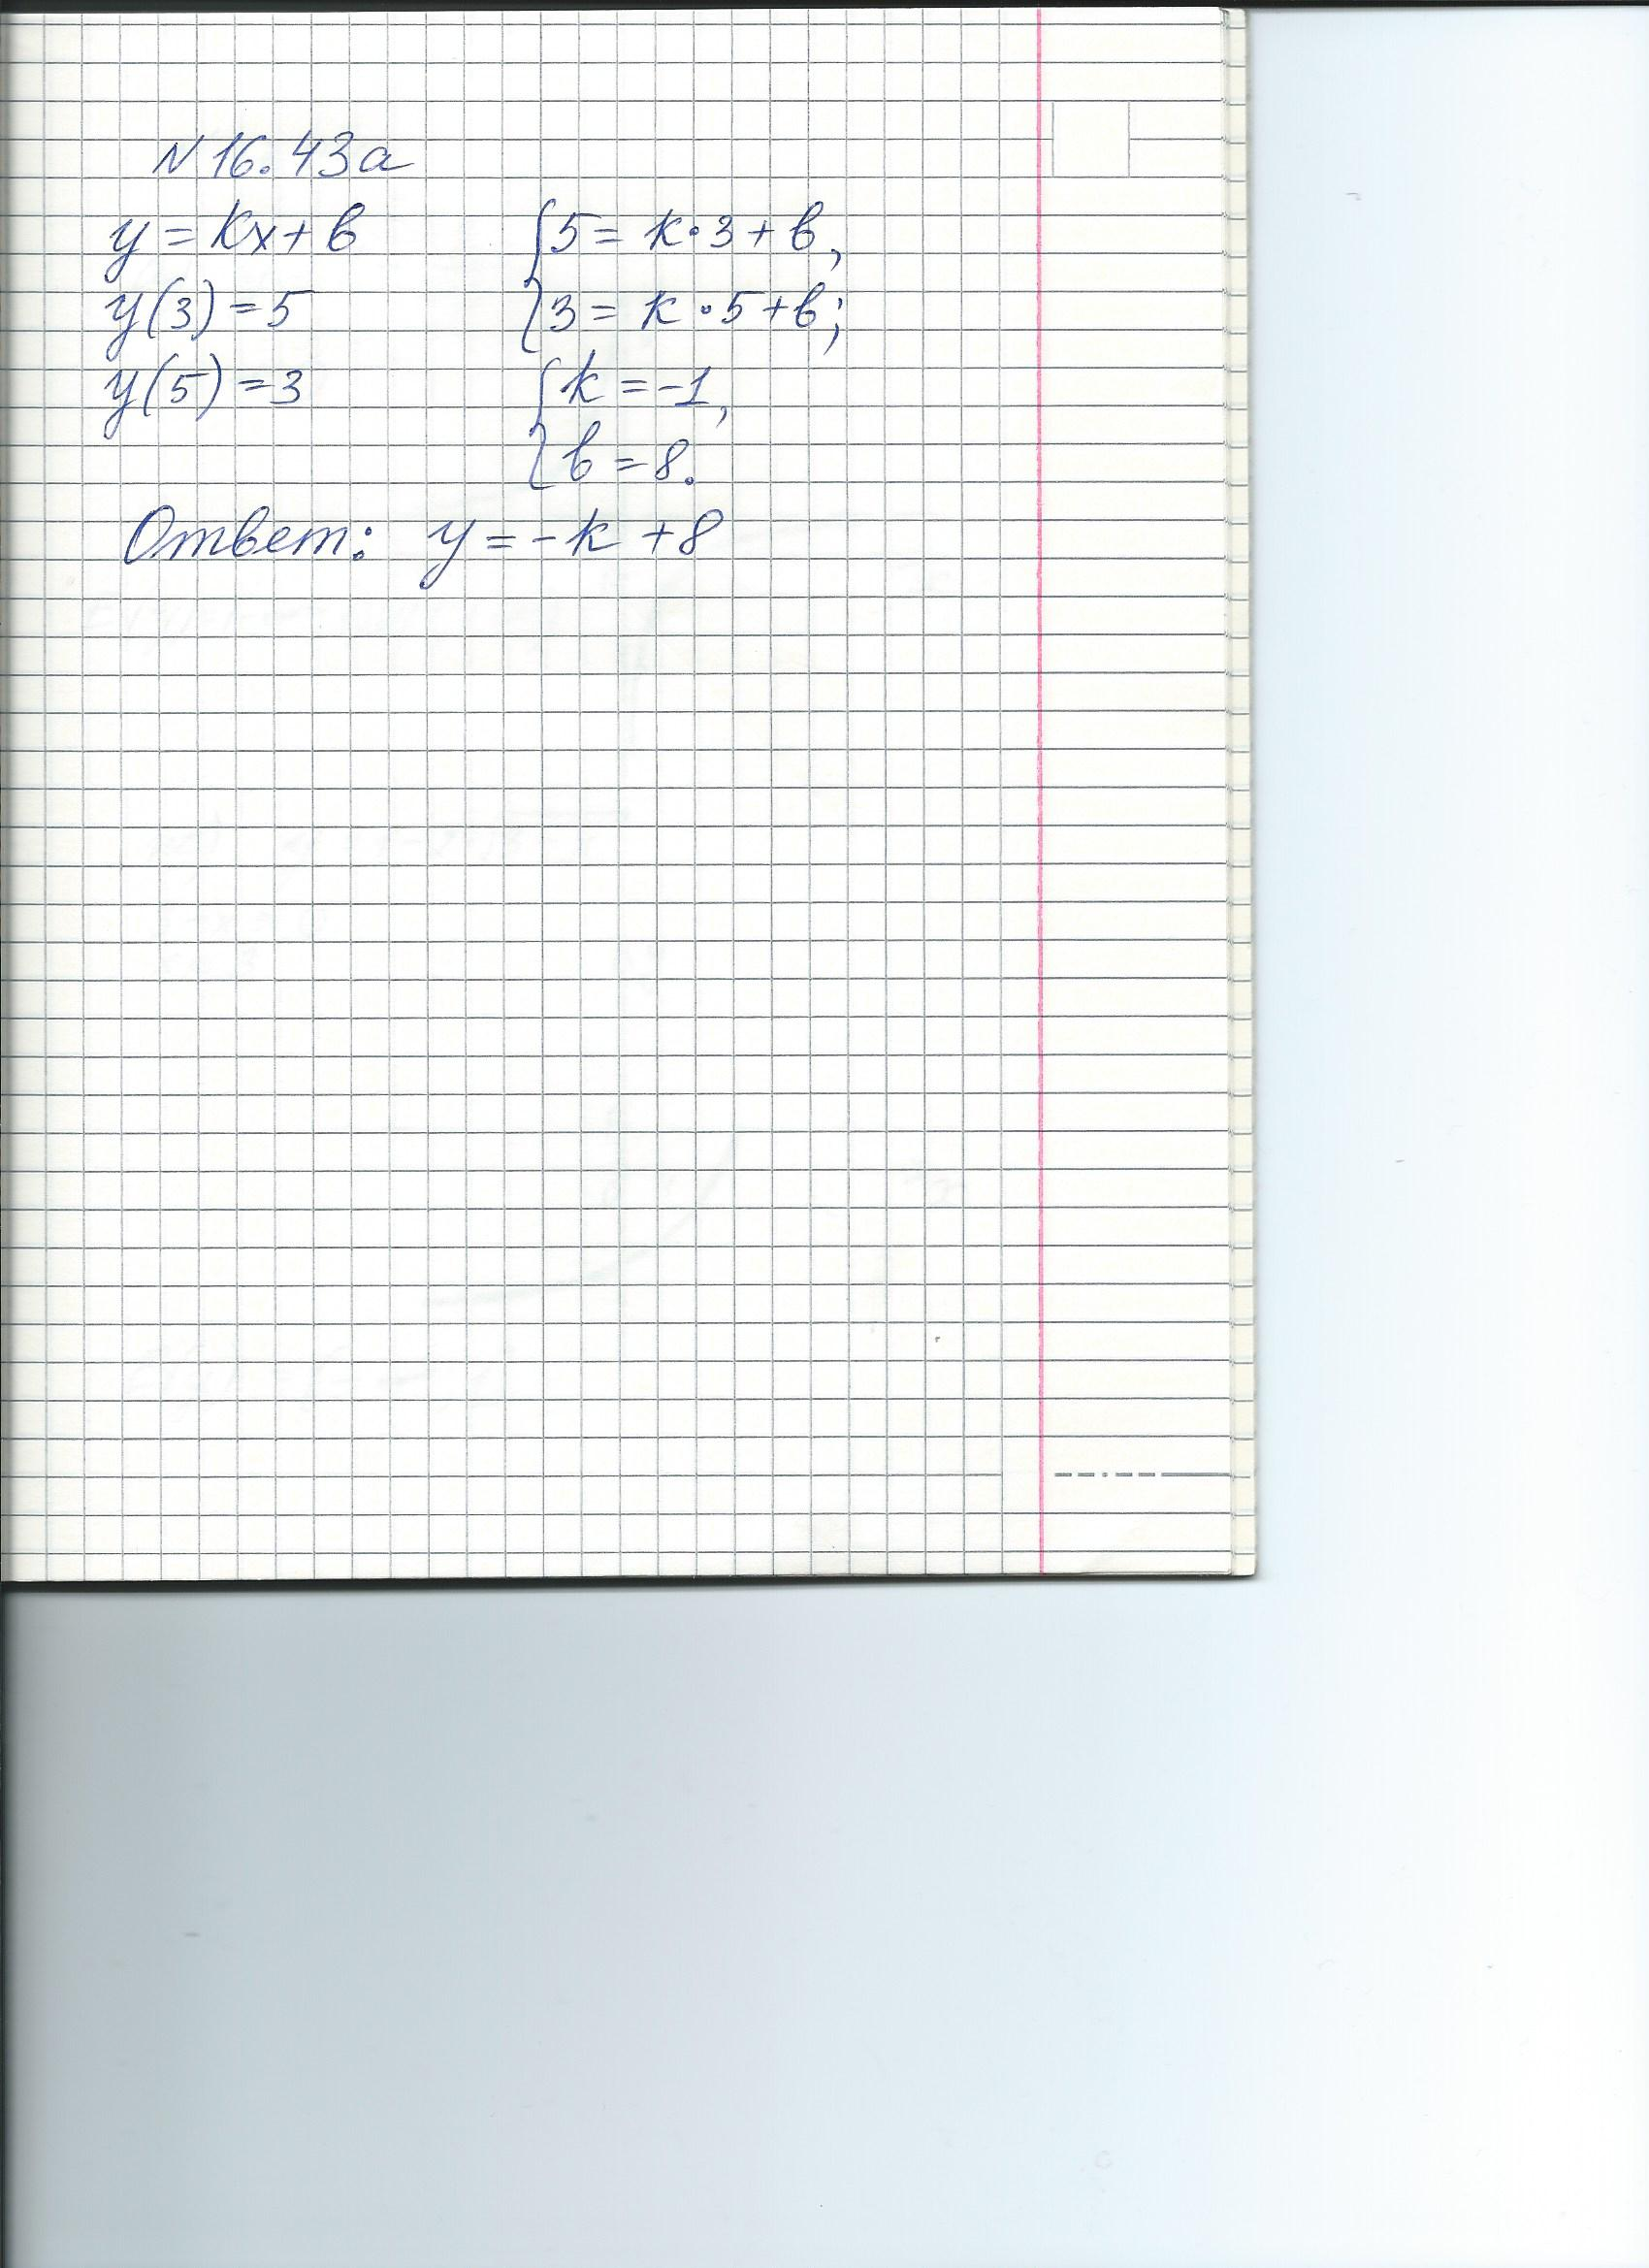 N 16.43а
y = kx + b
y(3) = 5
y(5) = 3
{ 5 = k·3 + b,
{ 3 = k·5 + b;
{ k = -1,
{ b = 8.
Ответ: y = -k + 8